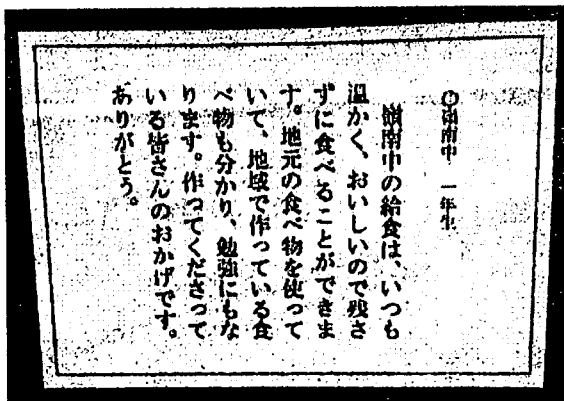 ◎嶺南中　一年生
嶺南中の給食は、いつも
温かく、おいしいので残さ
ずに食べることができま
す。地元の食べ物を使って
いて、地域で作っている食
べ物も分かり、勉強にもな
ります。作ってくださって
いる皆さんのおかげです。
ありがとう。